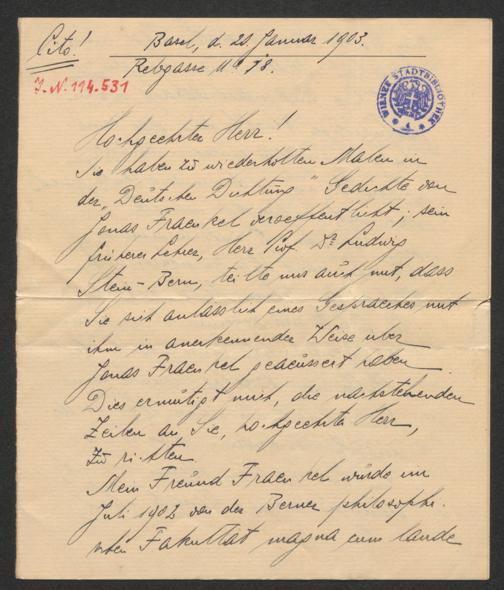 Cito!
Basel, d. 20. Januar 1903.
Rebgasse No 78.
I.N. 114.531
WIENER STADTBIBLIOTHEK
Hochgeehrter Herr!
Sie haben zu wiederholten Malen in
der „Deutschen Dichtung“ Gedichte von
Jonas Fraenkel veroeffentlicht; sein
früherer Lehrer, Herr Prof. Dr Ludwig
Stein-Bern, teilte mir auch mit, dass
Sie sich anlasslich eines Gespraeches mit
ihm in anerkennender Weise über
Jonas Fraenkel geaeussert haben.
Dies ermütigt mich, die nachstehenden
Zeilen an Sie, hochgeehrter Herr,
zu richten
Mein Freund Fraenkel wurde im
Juli 1902 von der Berner philosophi-
schen Fakultät magna cum laude